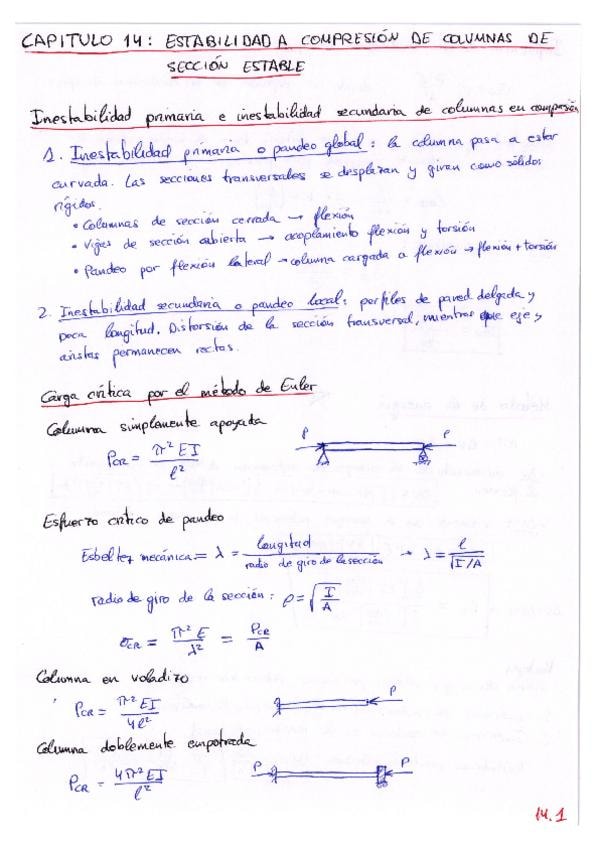 CAPITULO 14: ESTABILIDAD A COMPRESIÓN DE COLUMNAS DE
SECCIÓN ESTABLE
Inestabilidad primaria e inestabilidad secundaria de columnas en compresión
1. Inestabilidad primaria o pandeo global: la columna pasa a estar
curvada. Las secciones transversales se desplazan y giran como sólidos
rígidos.
• Columnas de sección cerrada → flexión
• Vigas de sección abierta → acoplamiento flexión y torsión
• Pandeo por flexión lateral → columna cargada a flexión → flexión + torsión
2. Inestabilidad secundaria o pandeo local: perfiles de pared delgada y
poca longitud. Distorsión de la sección transversal, mientras que eje y
aristas permanecen rectas.
Carga crítica por el método de Euler
Columna simplemente apoyada
P_CR = π² EI / l²
P P
Esfuerzo crítico de pandeo
Esbeltez mecánica = λ = longitud / radio de giro de la sección → λ = l / √(I/A)
radio de giro de la sección: ρ = √(I/A)
σ_CR = π² E / λ² = P_CR / A
Columna en voladizo
P_CR = π² EI / 4l²
P
Columna doblemente empotrada
P_CR = 4π² EI / l²
P P
14.1